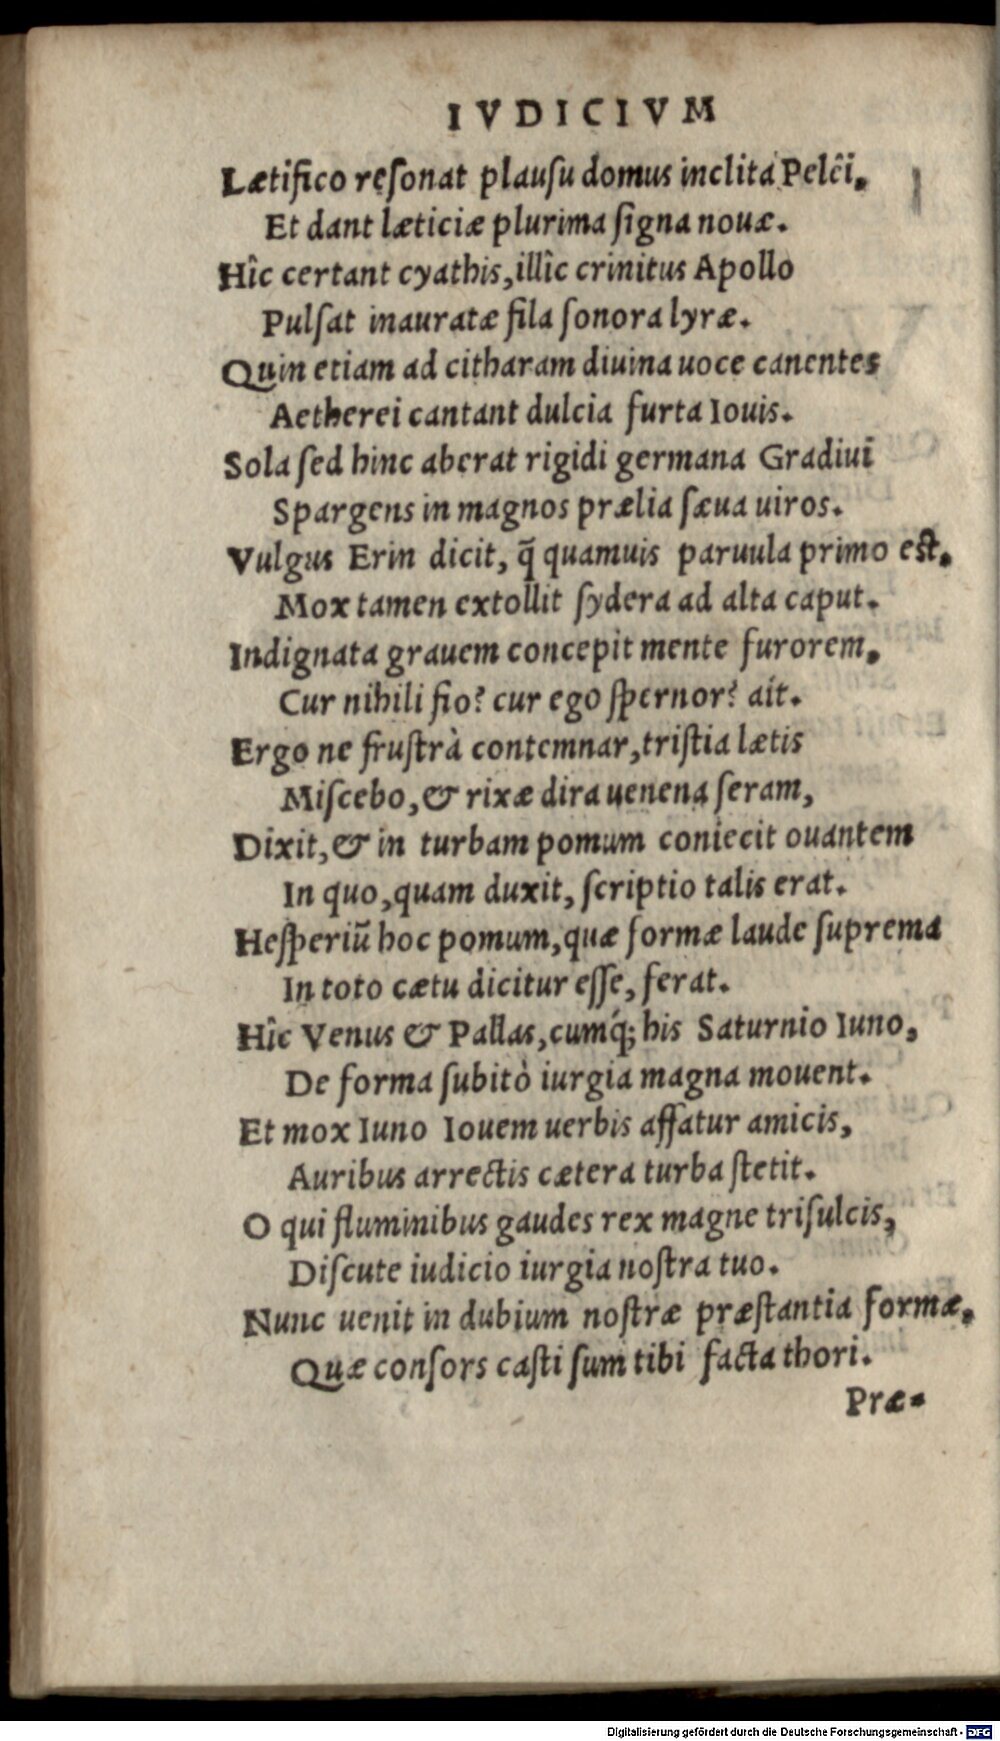 IVDICIVM
Lætifico reſonat plauſu domus inclita Pelêi.
Et dant læticiæ plurima ſigna nouæ.
Hîc certant cyathis, illîc crinitus Apollo
Pulſat inauratæ fila ſonora lyræ.
Quin etiam ad citharam diuina uoce canentes
Aetherei cantant dulcia furta Iouis.
Sola ſed hinc aberat rigidi germana Gradiui
Spargens in magnos prælia ſæua uiros.
Vulgus Erin dicit, q̃ quamuis paruula primo eſt.
Mox tamen extollit ſydera ad alta caput.
Indignata grauem concepit mente furorem.
Cur nihili fio? cur ego ſpernor? ait.
Ergo ne fruſtrà contemnar, triſtia lætis
Miſcebo, & rixæ dira uenena ſeram,
Dixit, & in turbam pomum coniecit ouantem
In quo, quam duxit, ſcriptio talis erat.
Heſperiũ hoc pomum, quæ formæ laude ſuprema
In toto cætu dicitur eſſe, ferat.
Hîc Venus & Pallas, cumq́; his Saturnio Iuno,
De forma ſubitò iurgia magna mouent.
Et mox Iuno Iouem uerbis affatur amicis,
Auribus arrectis cætera turba ſtetit.
O qui fluminibus gaudes rex magne triſulcis,
Diſcute iudicio iurgia noſtra tuo.
Nunc uenit in dubium noſtræ præſtantia formæ.
Quæ conſors caſti ſum tibi facta thori.
Præ-
Digitalisierung gefördert durch die Deutsche Forschungsgemeinschaft - DFG